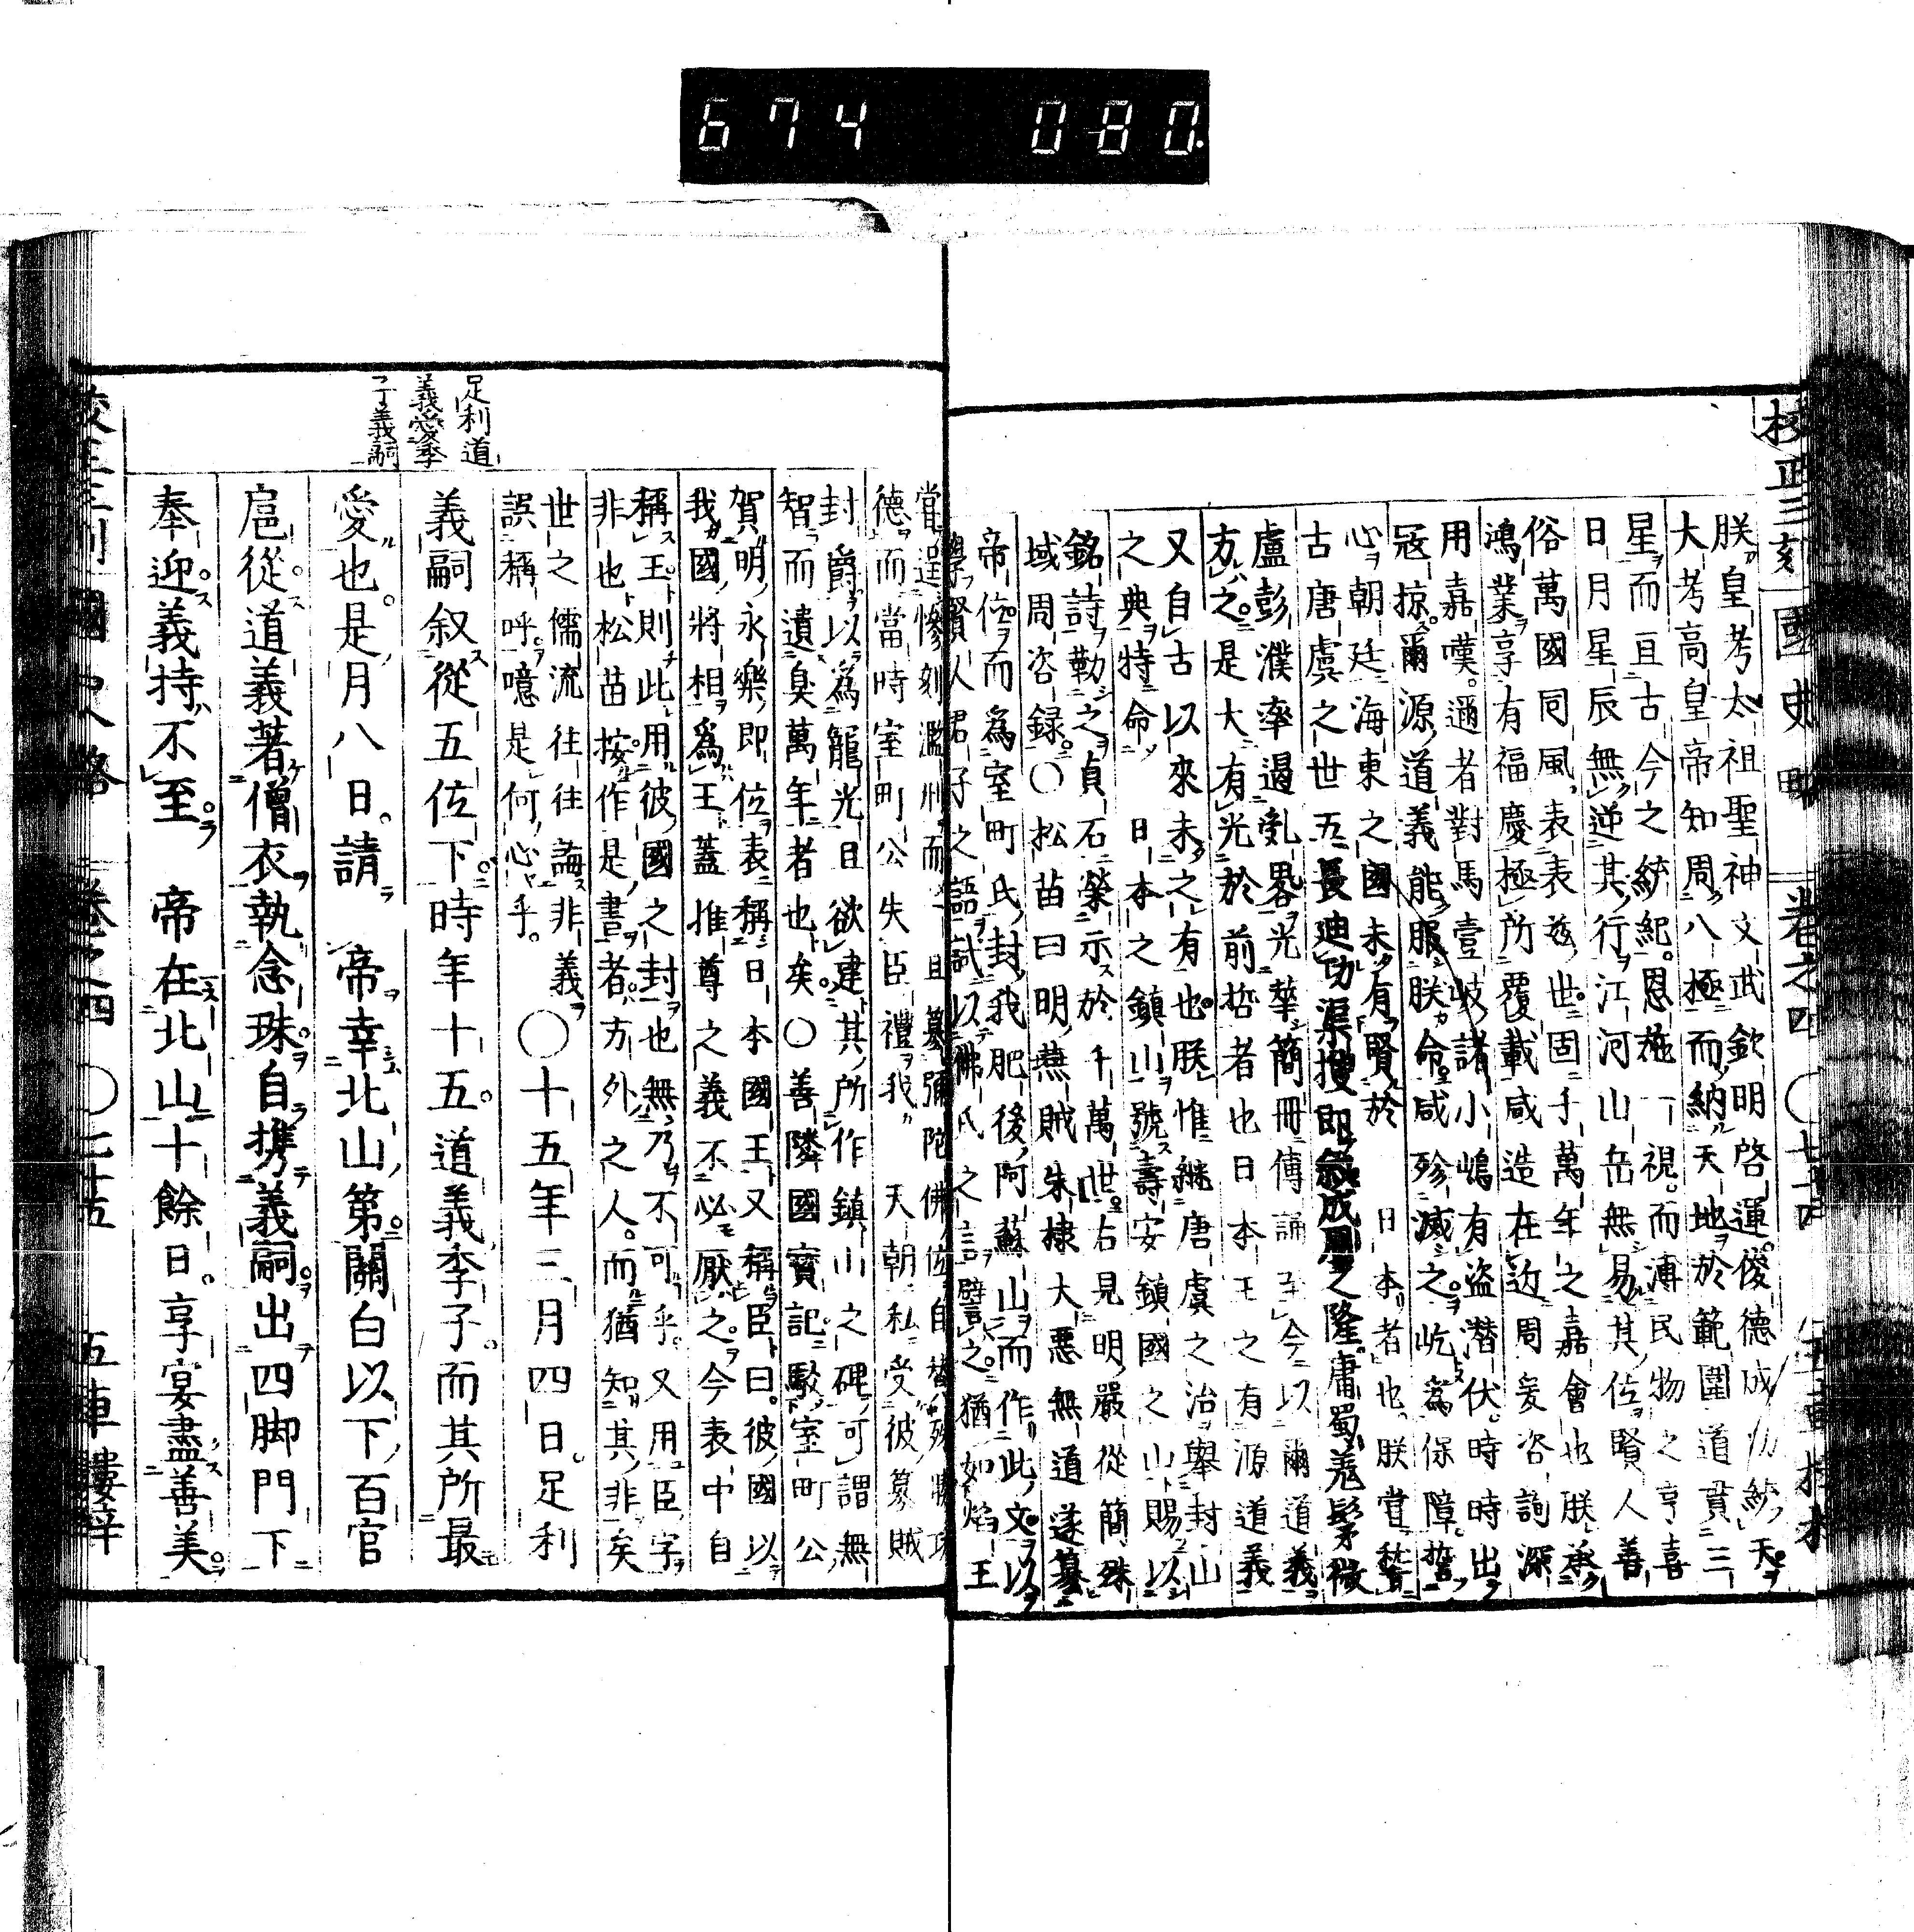 674 080
校正三刻 國史略 卷之四 〇七十四 五車樓梓
朕皇考太祖聖神文武欽明啓運俊德成功統天
大考高皇帝知周八極而納天地於範圍道貫三
星而亘古今之統紀恩施一視而溥民物之亨喜
日月星辰無逆其行江河山岳無易其位賢人善
俗萬國同風表表茲世固千萬年之嘉會也朕承
鴻業享有福慶極所覆載咸造在近周爰咨詢深
用嘉嘆邇者對馬壹岐諸小嶋有盜潛伏時時出
寇掠爾源道義能服朕命咸殄滅之屹為保障誓
心朝廷海東之國未有賢於日本者也朕嘗稽
古唐虞之世五長迪功渠搜即叙成周之隆庸蜀羌髳微
盧彭濮率遏亂畧光華簡冊傳誦至今以爾道義
方之是大有光於前哲者也日本王之有源道義
又自古以來未之有也朕惟継唐虞之治舉封山
之典特命日本之鎮山號壽安鎮國之山賜以
銘詩勒之貞石榮示於千萬世右見明嚴從簡殊
域周咨録〇松苗曰明燕賊朱棣大悪無道遂篡
帝位而為室町氏封我肥後阿蘇山而作此文以
學賢人君子之語試以佛氏之言譬之猶如焰王
當逞慘刻濫刑而且慕彌陀佛位自
德而當時室町公失臣禮我天朝私受彼篡賊
封爵以為寵光且欲建其所作鎮山之碑可謂無
智而遺臭萬年者也矣〇善隣國寳記駁室町公
賀明永樂即位表稱日本國王又稱臣曰彼國以
我國將相為王蓋推尊之義不必厭之今表中自
稱王則此用彼國之封也無乃不可乎又用臣字
非也松苗按作是書者方外之人而猶知其非矣
世之儒流往往論非義
誤稱呼噫是何心乎
〇十五年三月四日足利
義嗣叙從五位下時年十五道義季子而其所最
愛也是月八日請帝幸北山第關白以下百官
扈從道義著僧衣執念珠自携義嗣出四脚門下
奉迎義持不至帝在北山十餘日享宴盡善美
足利道
義愛季
子義嗣
校正三刻 國史略 卷之四 〇七十五 五車樓梓